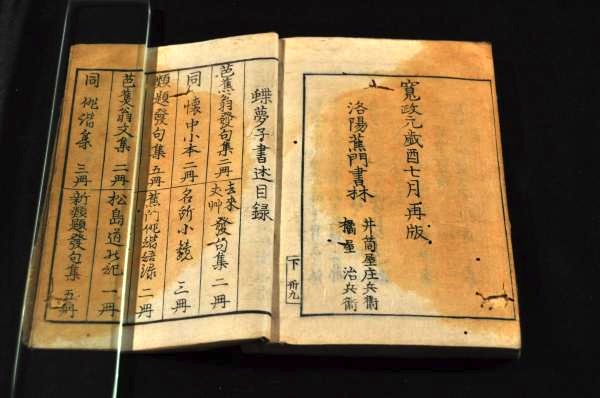 寛政元歳酉七月再版
洛陽蕉門書林
井筒屋庄兵衛
橘屋治兵衛
下 卅九
蝶夢子書述目録
芭蕉翁發句集 二冊
去来
丈艸
發句集 二冊
同 懐中小本 二冊
名所小鏡 三冊
類題發句集 五冊
蕉門俳諧語録 二冊
芭蕉翁文集 二冊
松島道の記 一冊
同 俳諧集 三冊
新類題發句集 五冊